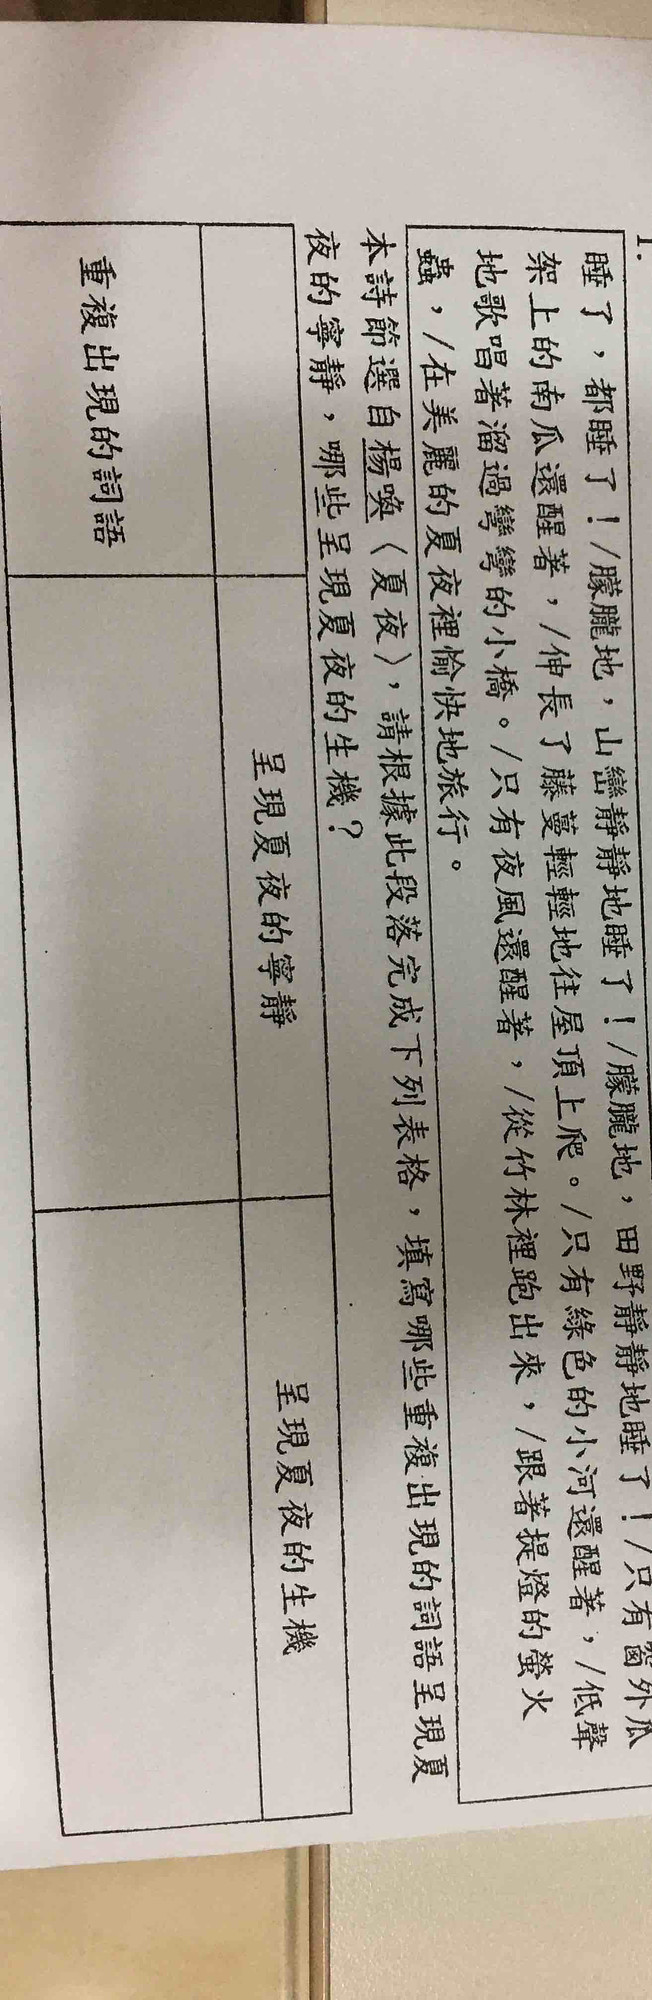 1.
睡了，都睡了！/朦朧地，山巒靜靜地睡了！/朦朧地，田野靜靜地睡了！/只有窗外瓜
架上的南瓜還醒著，/伸長了藤蔓輕輕地往屋頂上爬。/只有綠色的小河還醒著，/低聲
地歌唱著溜過彎彎的小橋。/只有夜風還醒著，/從竹林裡跑出來，/跟著提燈的螢火
蟲，/在美麗的夏夜裡愉快地旅行。
本詩節選自楊喚〈夏夜〉，請根據此段落完成下列表格，填寫哪些重複出現的詞語呈現夏
夜的寧靜，哪些呈現夏夜的生機？
呈現夏夜的寧靜
呈現夏夜的生機
重複出現的詞語